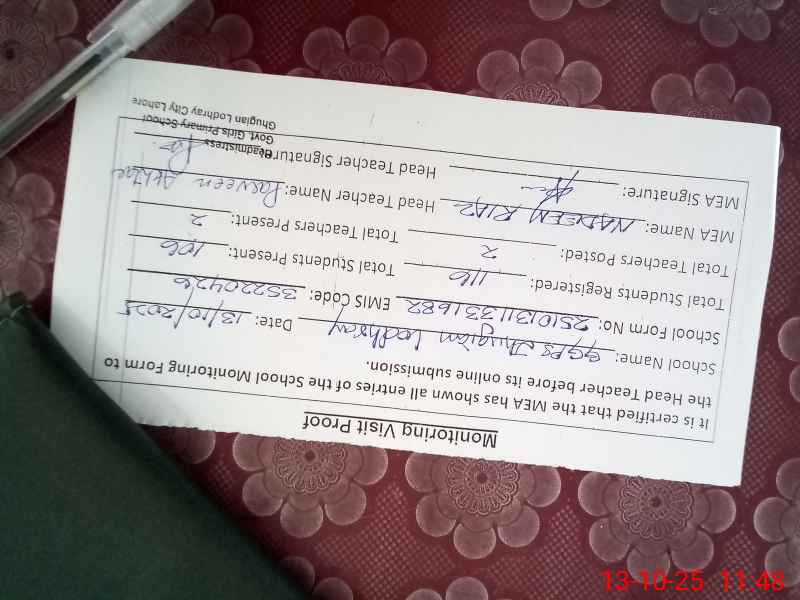 Monitoring Visit Proof
It is certified that the MEA has shown all entries of the School Monitoring Form to
the Head Teacher before its online submission.
School Name: GGPS Jhugian Lodhray Date: 13/10/2025
School Form No: 25101311331682 EMIS Code: 35220426
Total Students Registered: 116 Total Students Present: 106
Total Teachers Posted: 2 Total Teachers Present: 2
MEA Name: NADEEM RIAZ Head Teacher Name: Parveen Akhtar
MEA Signature: Head Teacher Signature:
Headmistress
Govt. Girls Primary School
Ghugian Lodhray City Lahore
13-10-25 11:48